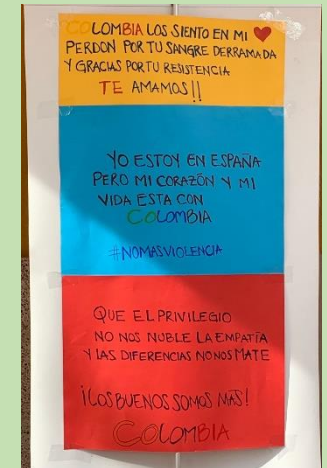 COLOMBIA LOS SIENTO EN MI
PERDON POR TU SANGRE DERRAMADA
Y GRACIAS POR TU RESISTENCIA
TE AMAMOS!!
YO ESTOY EN ESPAÑA
PERO MI CORAZÓN Y MI
VIDA ESTA CON
COLOMBIA
#NOMASVIOLENCIA
QUE EL PRIVILEGIO
NO NOS NUBLE LA EMPATÍA
Y LAS DIFERENCIAS NO NOS MATE
¡LOS BUENOS SOMOS MAS!
COLOMBIA